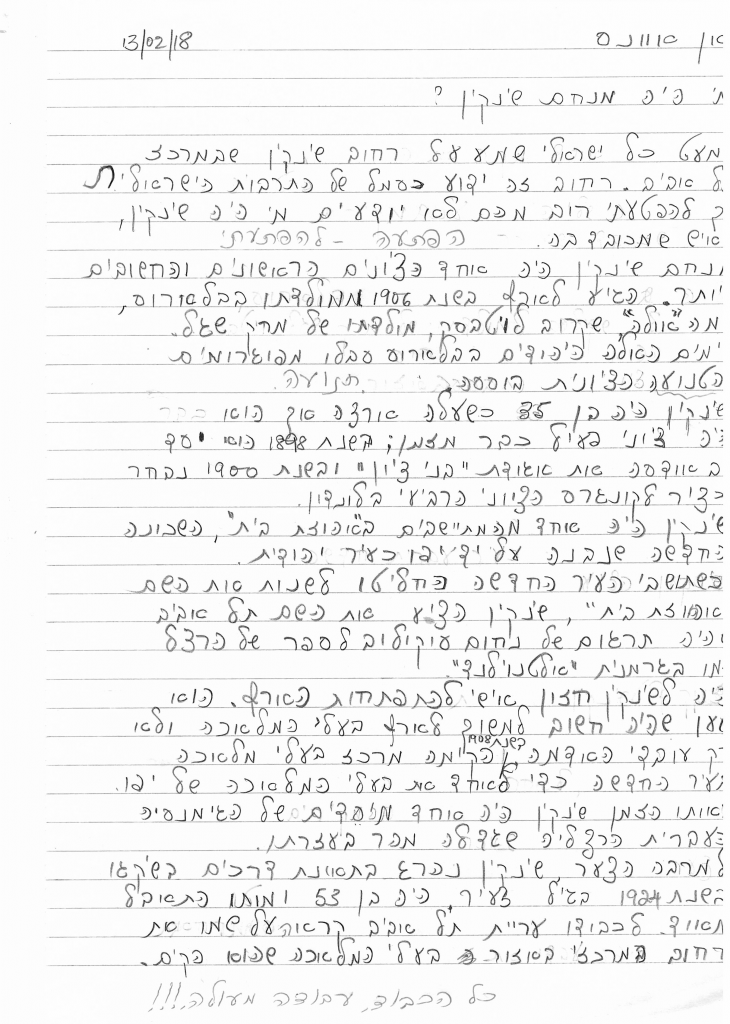 13/02/18
היה מנחם שינקין ?
כל ישראלי שמע על רחוב שינקין שבמרכז
אביב. רחוב זה ידוע כסמל של התרבות הישראלית
להפטעתי רוב מכם לא יודעים מי היה שינקין,
איש שמכובד בה. הפתעה - להפתעתי
מנחם שינקין היה אחד הציונים הראשונים והחשובים
ביותר. הגיע לארץ בשנת 1906 ממולדתו בבלארוס,
"אוולה", שקרוב לויטבסק, מולדתו של מרק שגל.
בימים האלה היהודים בבלארוס סבלו מפוגרומים
הטנועה הציונית בוססה. תנועה.
שינקין היה בן 35 כשעלה ארצה אך הוא כבר
היה ציוני פעיל כבר מזמן; בשנת 1898 הוא יסד
באודסה את אגודת "בני ציון" ובשנת 1900 נבחר
כציר לקונגרס הציוני הרביעי בלונדון.
שינקין היה אחד מהמתיישבים ב"אחוזת בית", השכונה
החדשה שנבנה על יד יפו כעיר יהודית.
כשתושבי העיר החדשה החליטו לשנות את השם
אחוזת בית", שינקין הציע את השם תל אביב
והיה תרגום של נחום סוקולוב לספר של הרצל
בגרמנית "אלטנוילנד".
היה לשינקין חזון אישי להתפתחות הארץ. הוא
טען שהיה חשוב למשוך לארץ בעלי המלאכה ולא
רק עובדי האדמה. בשנת 1908 הקימה מרכז בעלי מלאכה
בעיר החדשה כדי לאחד את בעלי המלאכה של יפו.
באותו הזמן שינקין היה אחד מיסדים של הגימנסיה
העברית הרצליה שגדלה מהר בעזרתו.
למרבה הצער, שינקין נהרג בתאונת דרכים בשיקגו
בשנת 1924 בגיל צעיר. היה בן 53 ומותו התאביל
מאוד. לכבודו עריית תל אביב קראה על שמו את
רחוב המרכזי באזור בעלי המלאכה שהוא הקים.
כל הכבוד, עבודה מעולה!!!